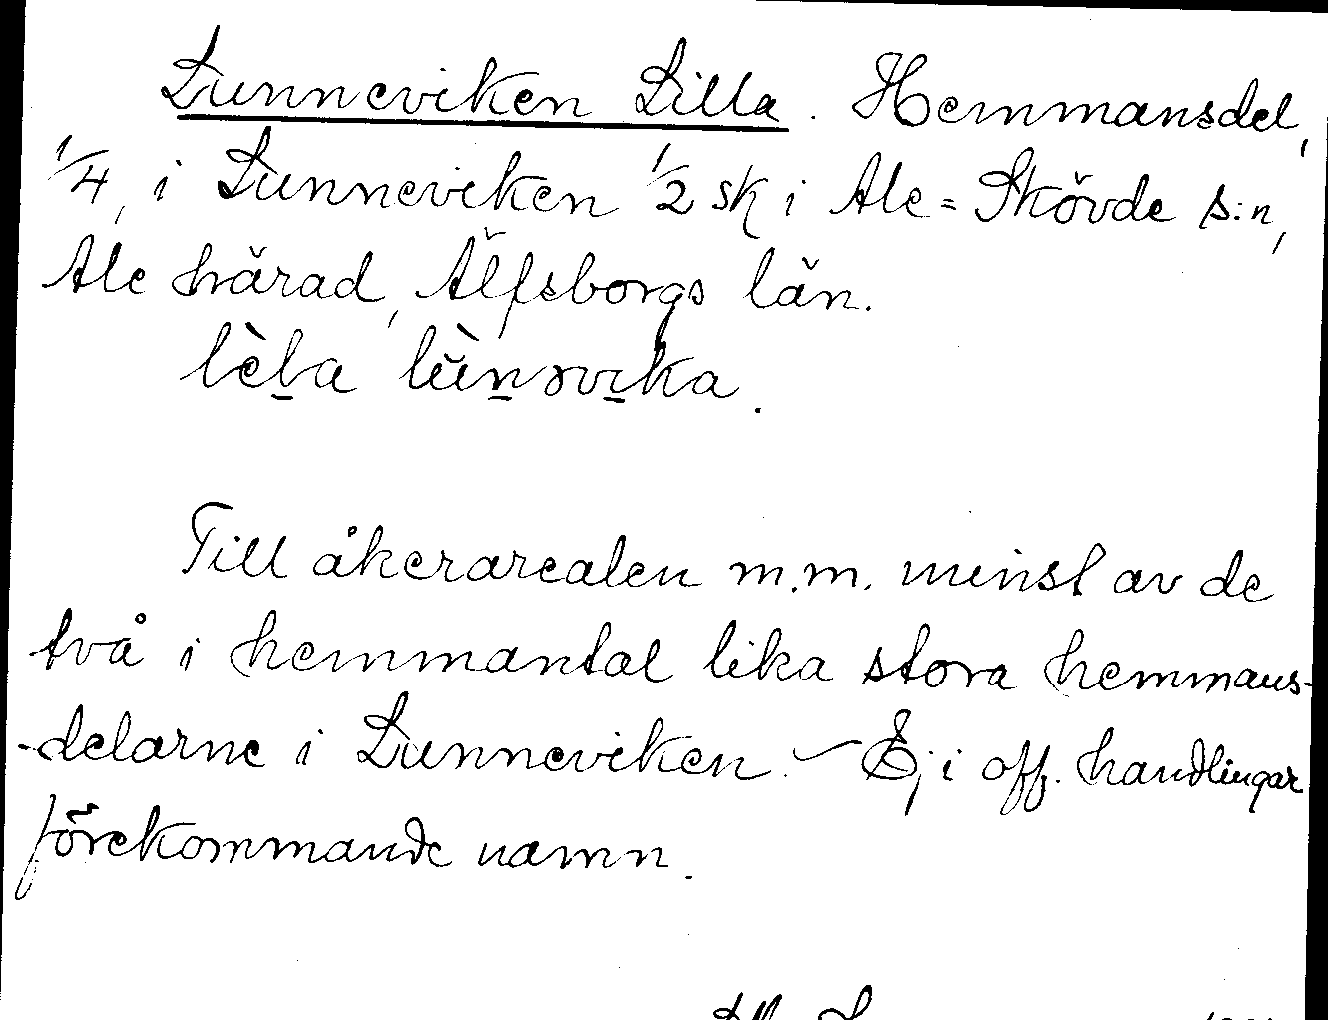 Lunneviken Lilla. Hemmansdel,
1/4, i Lunneviken 1/2 sk i Ale=Skövde s:n,
Ale härad, Älfsborgs län.
lèla lùnəvika.
Till åkerarealen m.m. minst av de
två i hemmantal lika stora hemmans-
-delarne i Lunneviken. – Ej i off. handlingar
förekommande namn.